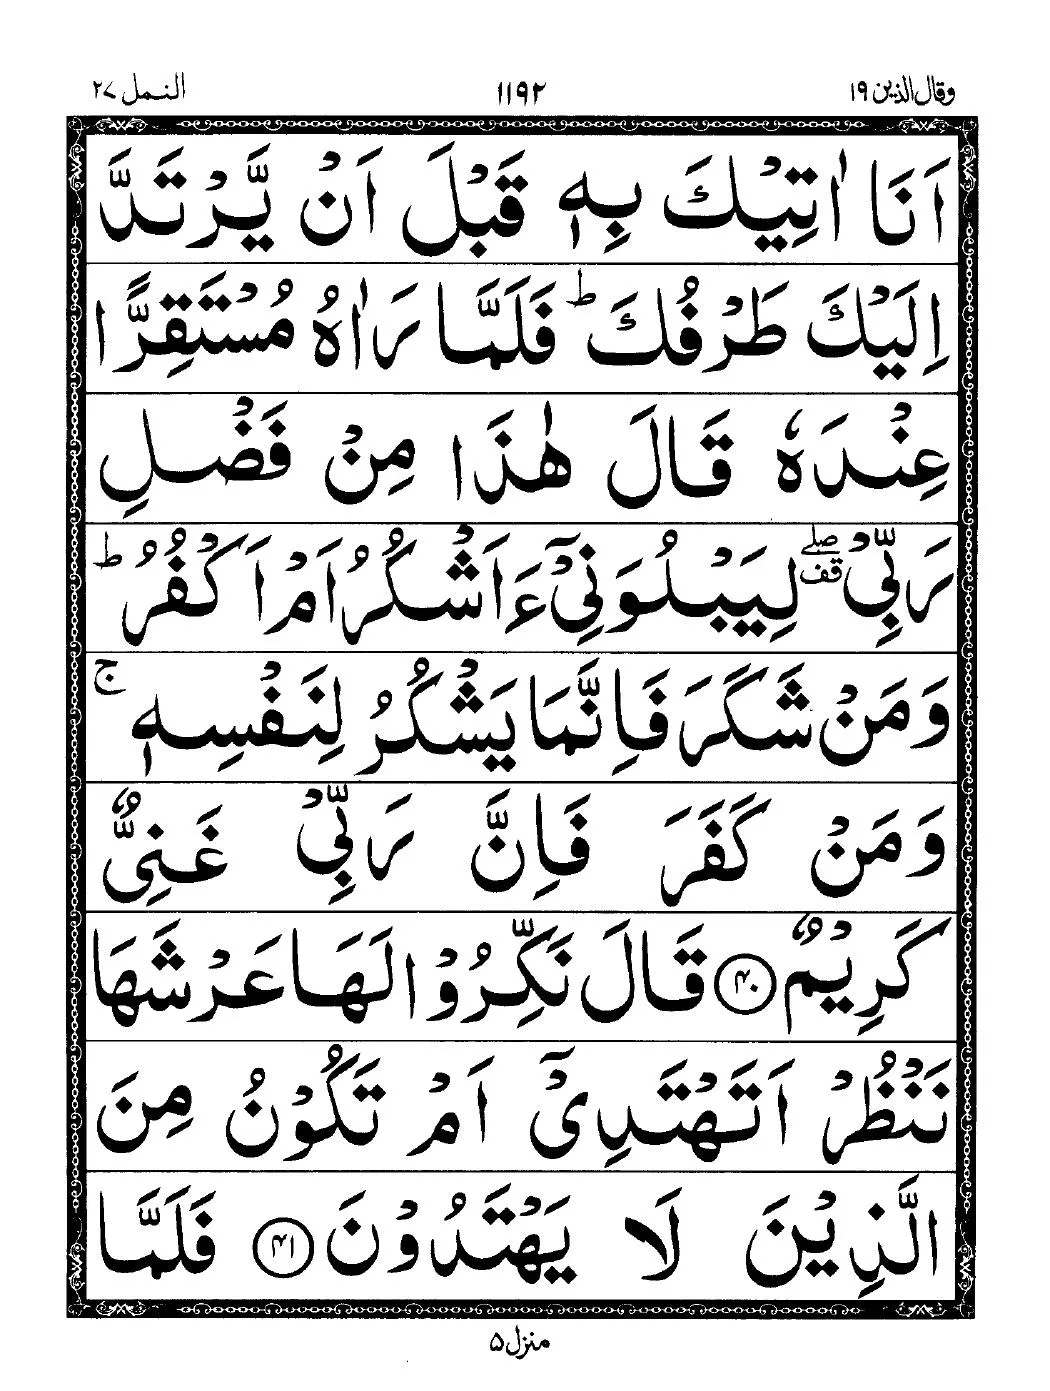 وقال الذين ۱۹
۱۱۹۲
النمل ۲۷
اَنَا اٰتِيْكَ بِهٖ قَبْلَ اَنْ يَّرْتَدَّ
اِلَيْكَ طَرْفُكَ ؕ فَلَمَّا رَاٰهُ مُسْتَقِرًّا
عِنْدَهٗ قَالَ هٰذَا مِنْ فَضْلِ
رَبِّيْ ۖۗ لِيَبْلُوَنِيْٓ ءَاَشْكُرُ اَمْ اَكْفُرُ ؕ
وَمَنْ شَكَرَ فَاِنَّمَا يَشْكُرُ لِنَفْسِهٖ ۚ
وَمَنْ كَفَرَ فَاِنَّ رَبِّيْ غَنِيٌّ
كَرِيْمٌ ۴۰ قَالَ نَكِّرُوْا لَهَا عَرْشَهَا
نَنْظُرْ اَتَهْتَدِيْٓ اَمْ تَكُوْنُ مِنَ
الَّذِيْنَ لَا يَهْتَدُوْنَ ۴۱ فَلَمَّا
منزل ۵